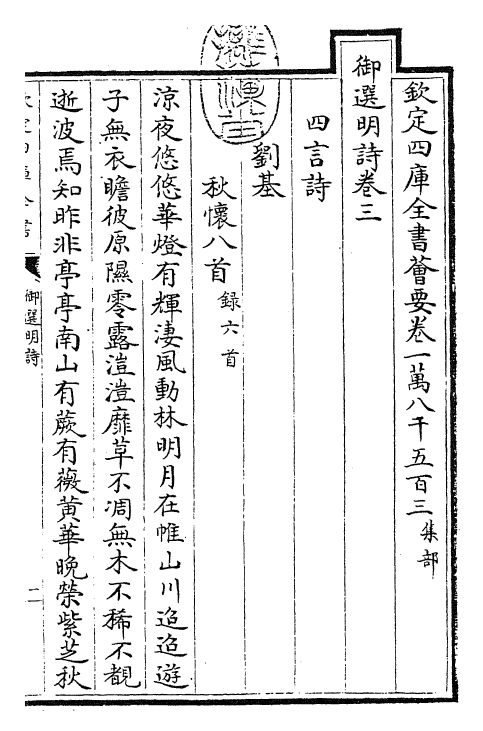 欽定四庫全書薈要卷一萬八千五百三集部
御選明詩卷三
四言詩
劉基
秋懷八首録六首
涼夜悠悠華燈有輝淒風動林明月在帷山川迢迢遊
子無衣瞻彼原隰零露溰溰靡草不凋無木不稀不覩
逝波焉知昨非亭亭南山有蕨有薇黄華晩榮紫芝秋
御選明詩
二